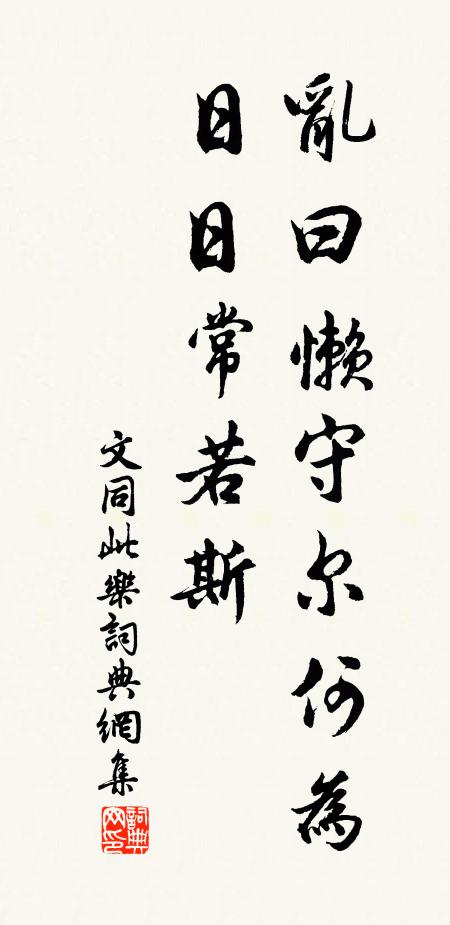 亂曰懶守尔何為
日日常若斯
文同此樂詞典網集
詞典网印